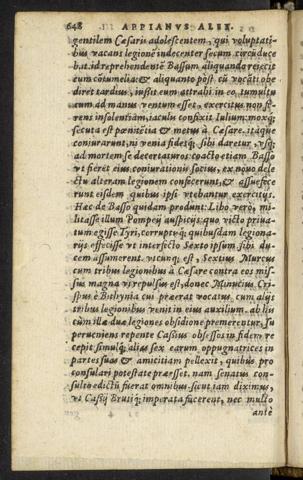 648 APPIANVS ALEX.
gentilem Cæsaris adolescentem, qui voluptati-
bus vacans legionē indecenter secum circūduce
bat. id reprehendentē Bassum aliquando reiecit
cum cōtumelia: & aliquanto pòst cū vocāti obe
diret tardius, iussit eum attrahi. in eo tumultu
cum ad manus ventum esset, exercitus non fe-
rens insolentiam, iaculis confixit Iulium: moxq́;
secuta est pœnitētia & metus à Cæsare. itaque
coniurarunt, ni venia fidesq́; sibi daretur, vsq́;
ad mortem se decertaturos: coacto etiam Basso
vt fieret eius coniurationis socius, ex nouo dele
ctu alteram legionem confecerunt, & assuefece
runt eisdem quibus ipsi vtebantur exercitijs.
Hæc de Basso quidam produnt: Libo verò, mi-
litasse illum Pompeij auspicijs quo victo priua-
tum egisse Tyri, corruptisq́; quibusdam legiona-
rijs effecisse vt interfecto Sexto ipsum sibi du-
cem assumerent. vtcunq́; est, Sextius Murcus
cum tribus legionibus à Cæsare contra eos mis-
sus magna vi repulsus est, donec Minucius Cri-
spus è Bithynia cui præerat vocatus, cum alijs
tribus legionibus venit in eius auxilium. ab his
cùm illæ duæ legiones obsidione premerentur, su
perueniens repente Cassius obsessos in fidem re
cepit simulq́; alias sex earum oppugnatrices in
partes suas & amicitiam pellexit, quibus pro
consulari potestate præesset. nam senatus con-
sulto edictū fuerat omnibus, sicut iam diximus,
vt Cassij Brutiq́; imperata facerent. nec multo
antè